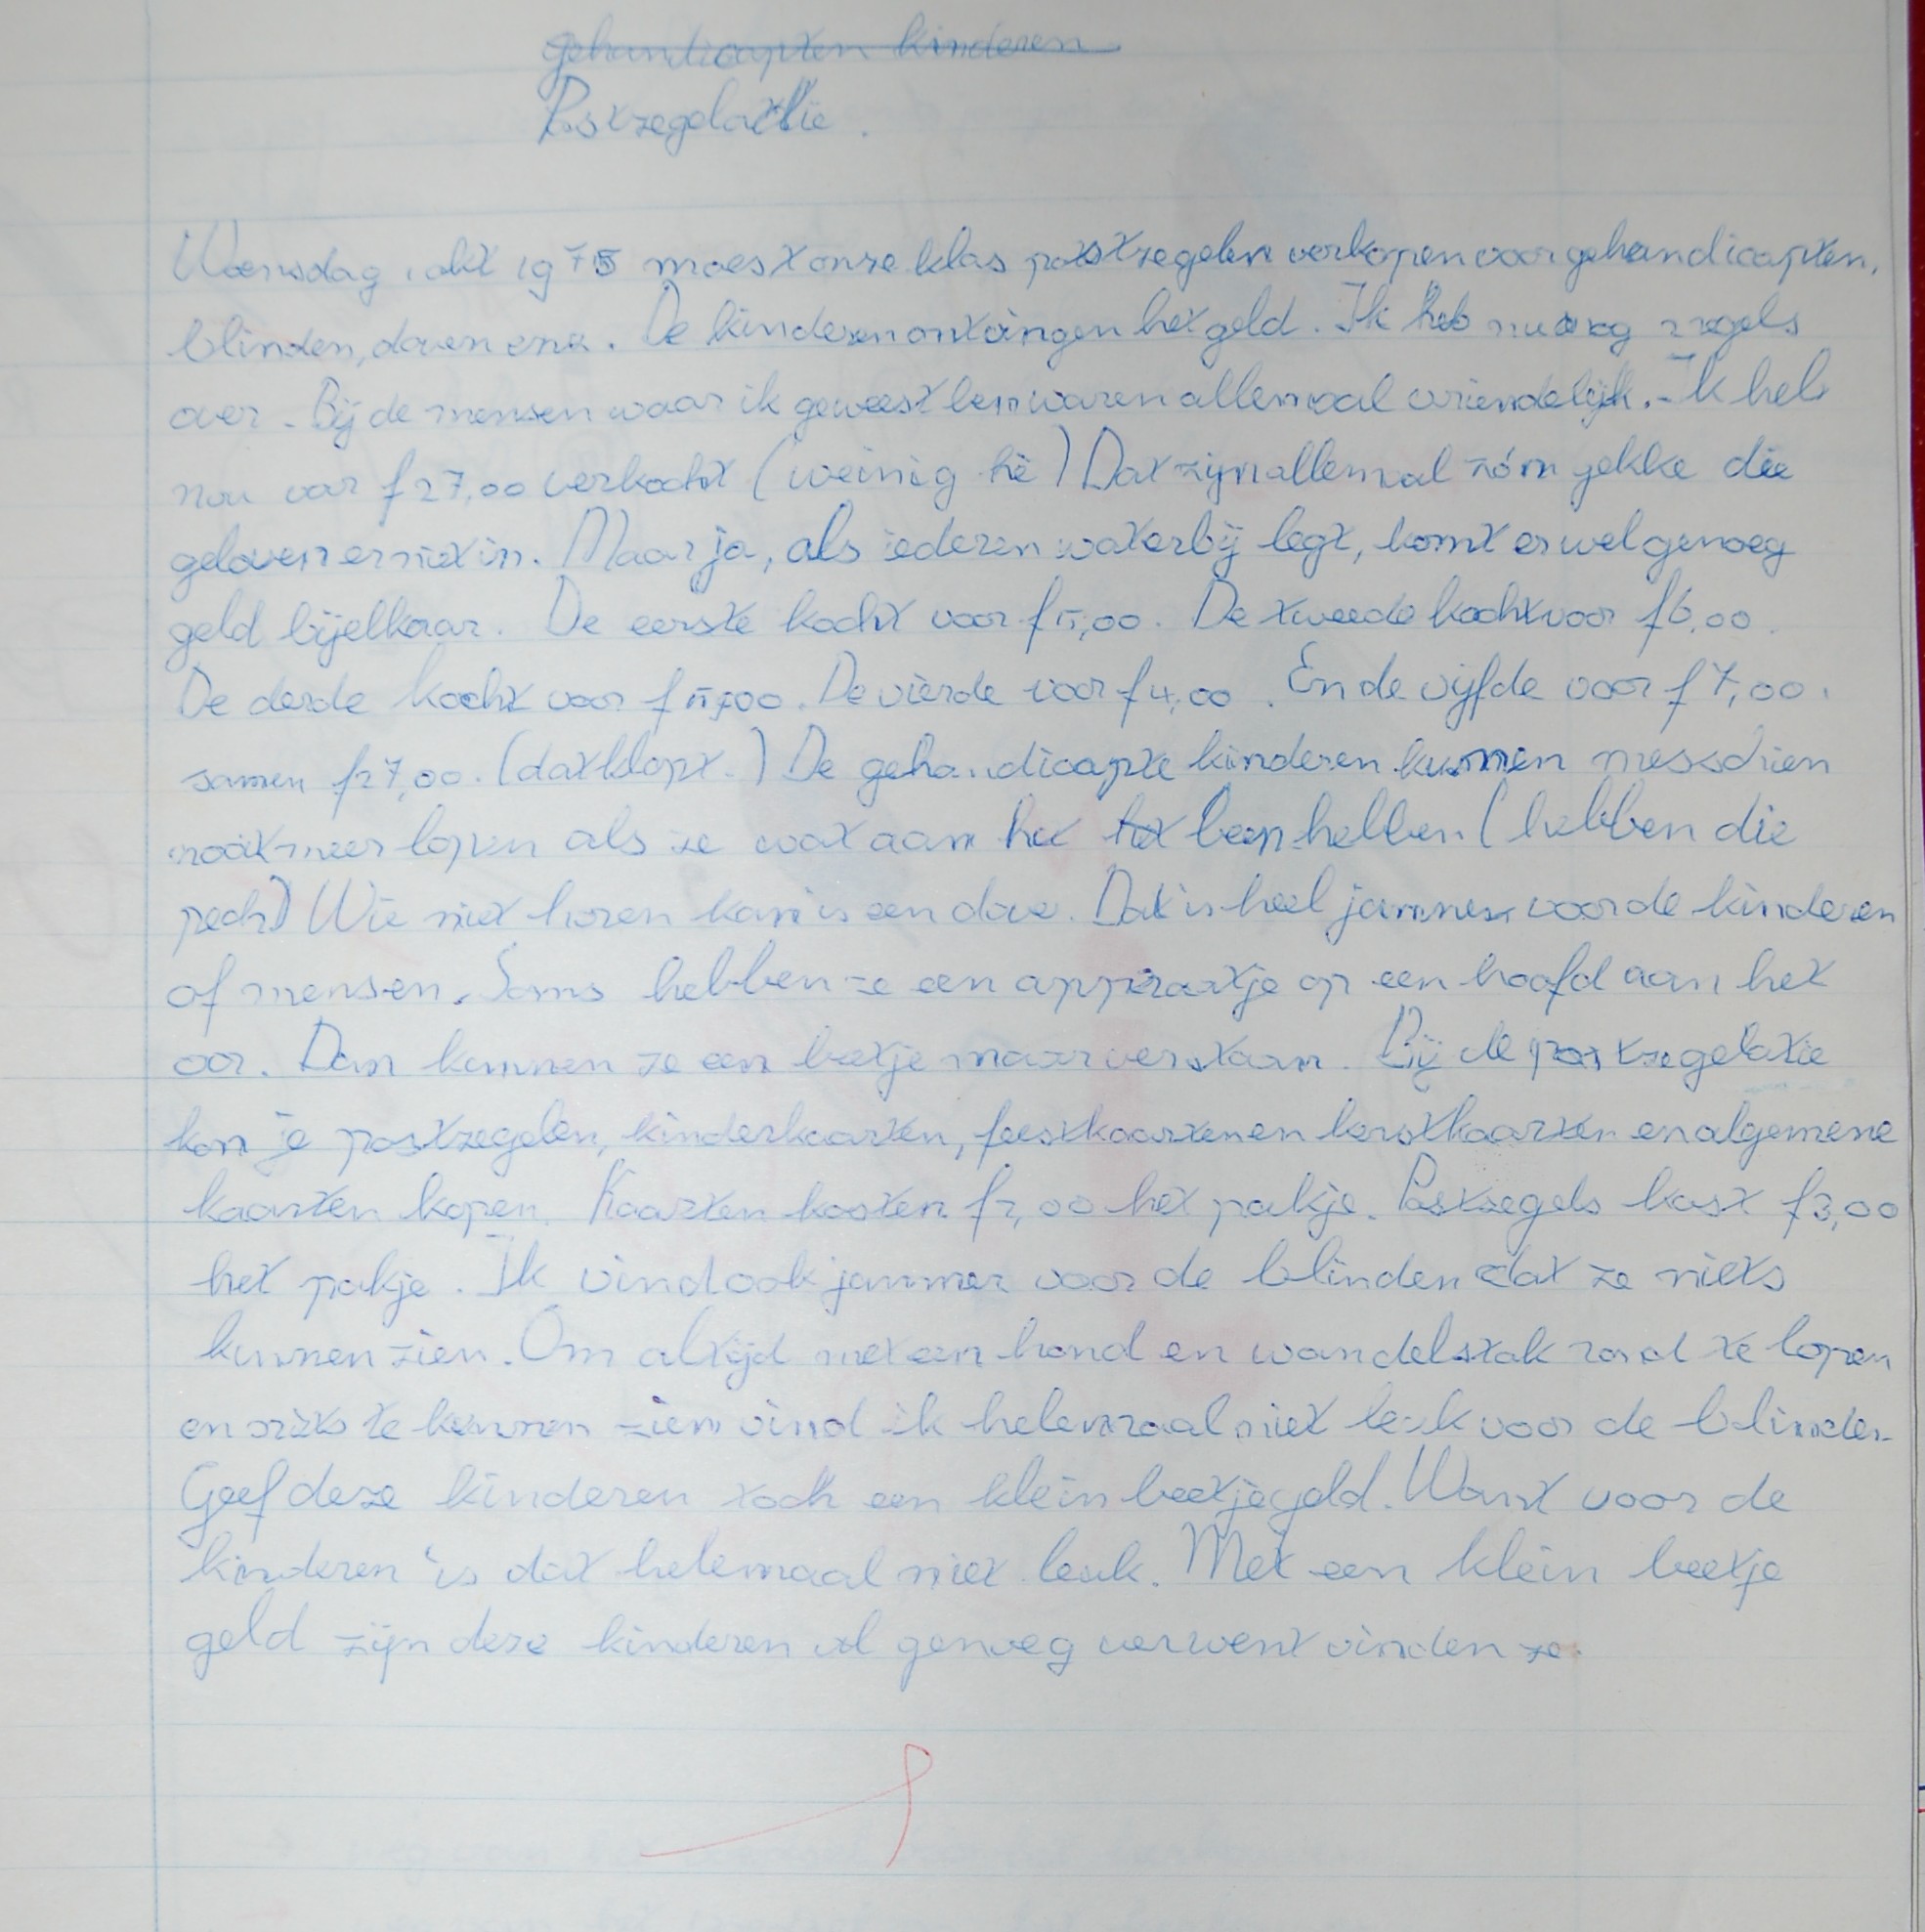 gehandicapten kinderen
Postzegelactie.
Woensdag 1 okt 1975 moest onze klas postzegelen verkopen voor gehandicapten,
blinden, doven enz. De kinderen ontvingen het geld. Ik heb nu nog 2 zegels
over. Bij de mensen waar ik geweest ben waren allemaal vriendelijk. Ik heb
nou voor f27,00 verkocht (weinig hè) Dat zijn allemaal zó'n gekke die
geloven er niet in. Maar ja, als iederen wat erbij legt, komt er wel genoeg
geld bijelkaar. De eerste kocht voor f5,00. De tweede kocht voor f6,00.
De derde kocht voor f5,00. De vierde voor f4,00. En de vijfde voor f7,00.
samen f27,00. (dat klopt.) De gehandicapte kinderen kunnen messchien
nooit meer lopen als ze wat aan het been hebben (hebben die
pech) Wie niet horen kan is een dove. Dat is heel jammer voor de kinderen
of mensen. Soms hebben ze een apparaatje op een hoofd aan het
oor. Dan kunnen ze een beetje maar verstaan. Bij de postzegelatie
kon je postzegelen, kinderkaarten, feestkaarten en kerstkaarten en algemene
kaarten kopen. Kaarten kosten f2,00 het pakje. Postzegels kost f3,00
het pakje. Ik vind ook jammer voor de blinden dat ze niets
kunnen zien. Om altijd met een hond en wandelstok rond te lopen
en niks te kunnen zien vind ik helemaal niet leuk voor de blinden.
Geef deze kinderen toch een klein beetje geld. Want voor de
kinderen is dat helemaal niet leuk. Met een klein beetje
geld zijn deze kinderen al genoeg verwent vinden ze.